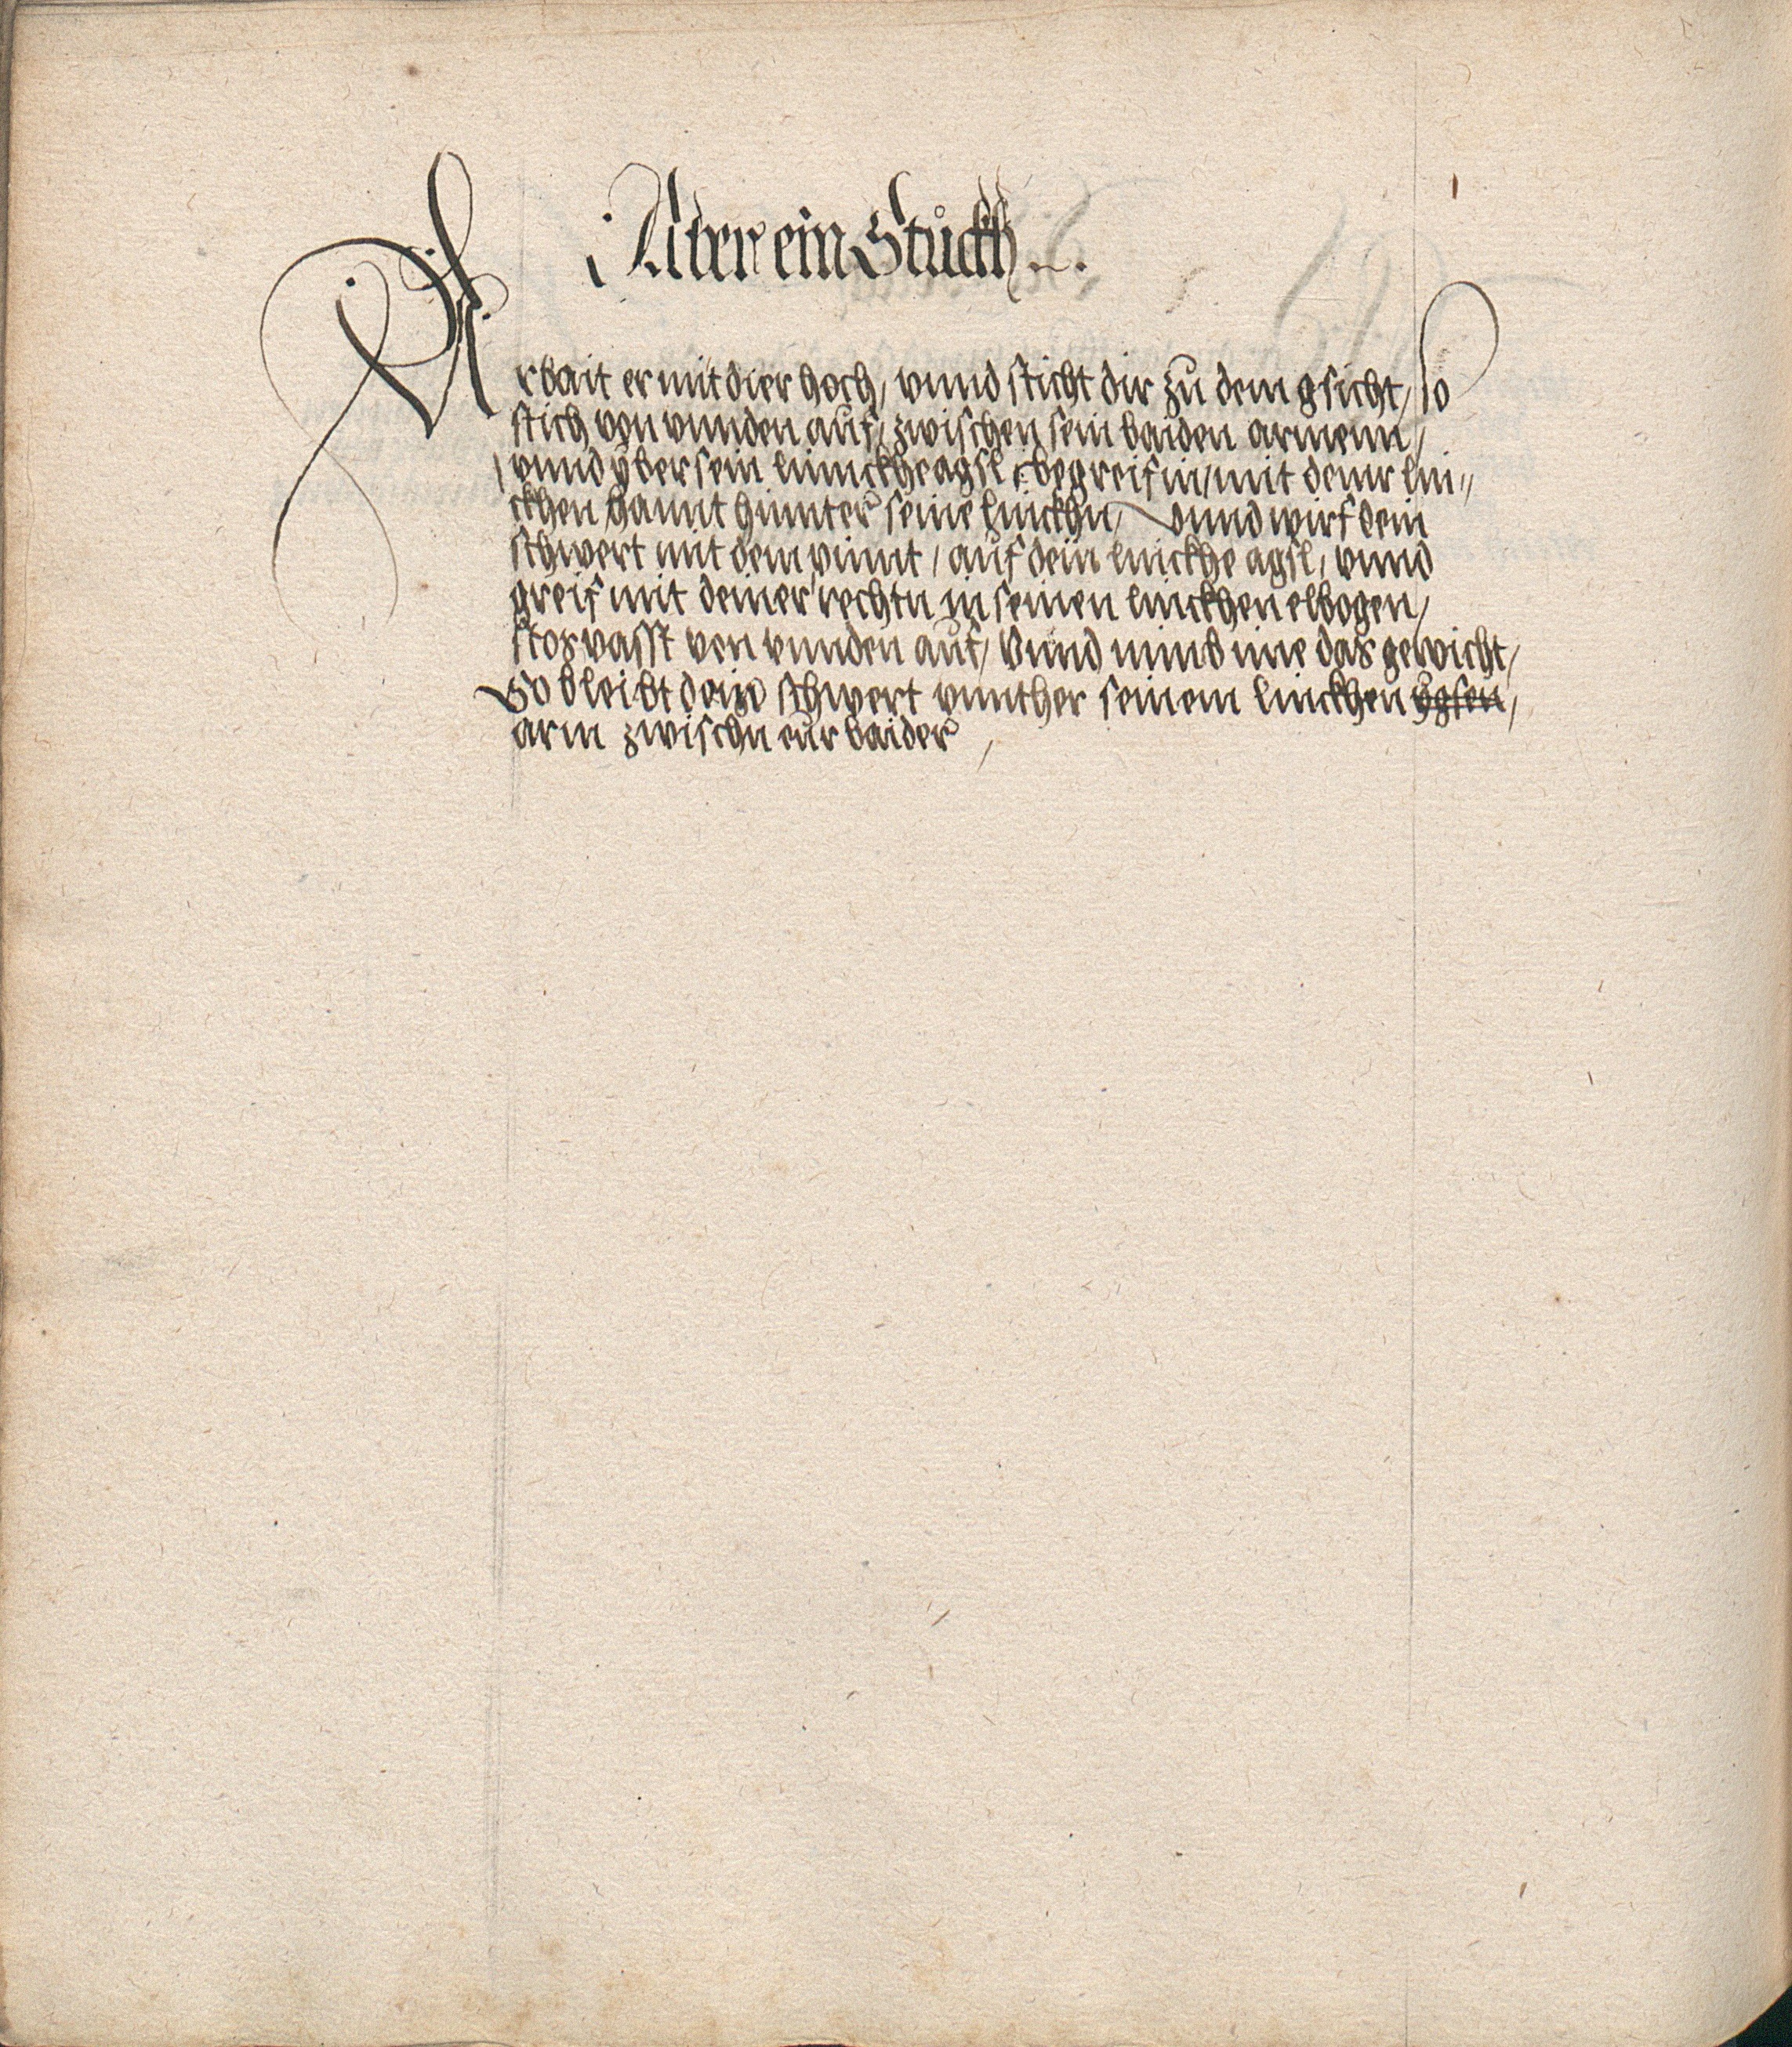 Aber ein Stuckh
Arbait er mit dier hoch, vnnd sticht dir zu dem gsicht, so
stich von vnnden auf, zwischen sein baiden armenn,
vnnd yber sein linnckhe agsl, begreif in, mit deinr lin-
ckhen hannt hinnter seine linckhn, Vnnd wirf dein
schwert mit dem vinnt, auf dein linckhe agsl, vnnd
greif mit deiner rechtn in seinen linckhen elbogen,
stos vasst von vnnden auf, Vnnd nimb ime das gewicht,
So bleibt dein schwert vnnther seinem linckhen
arm zwischn eur baider